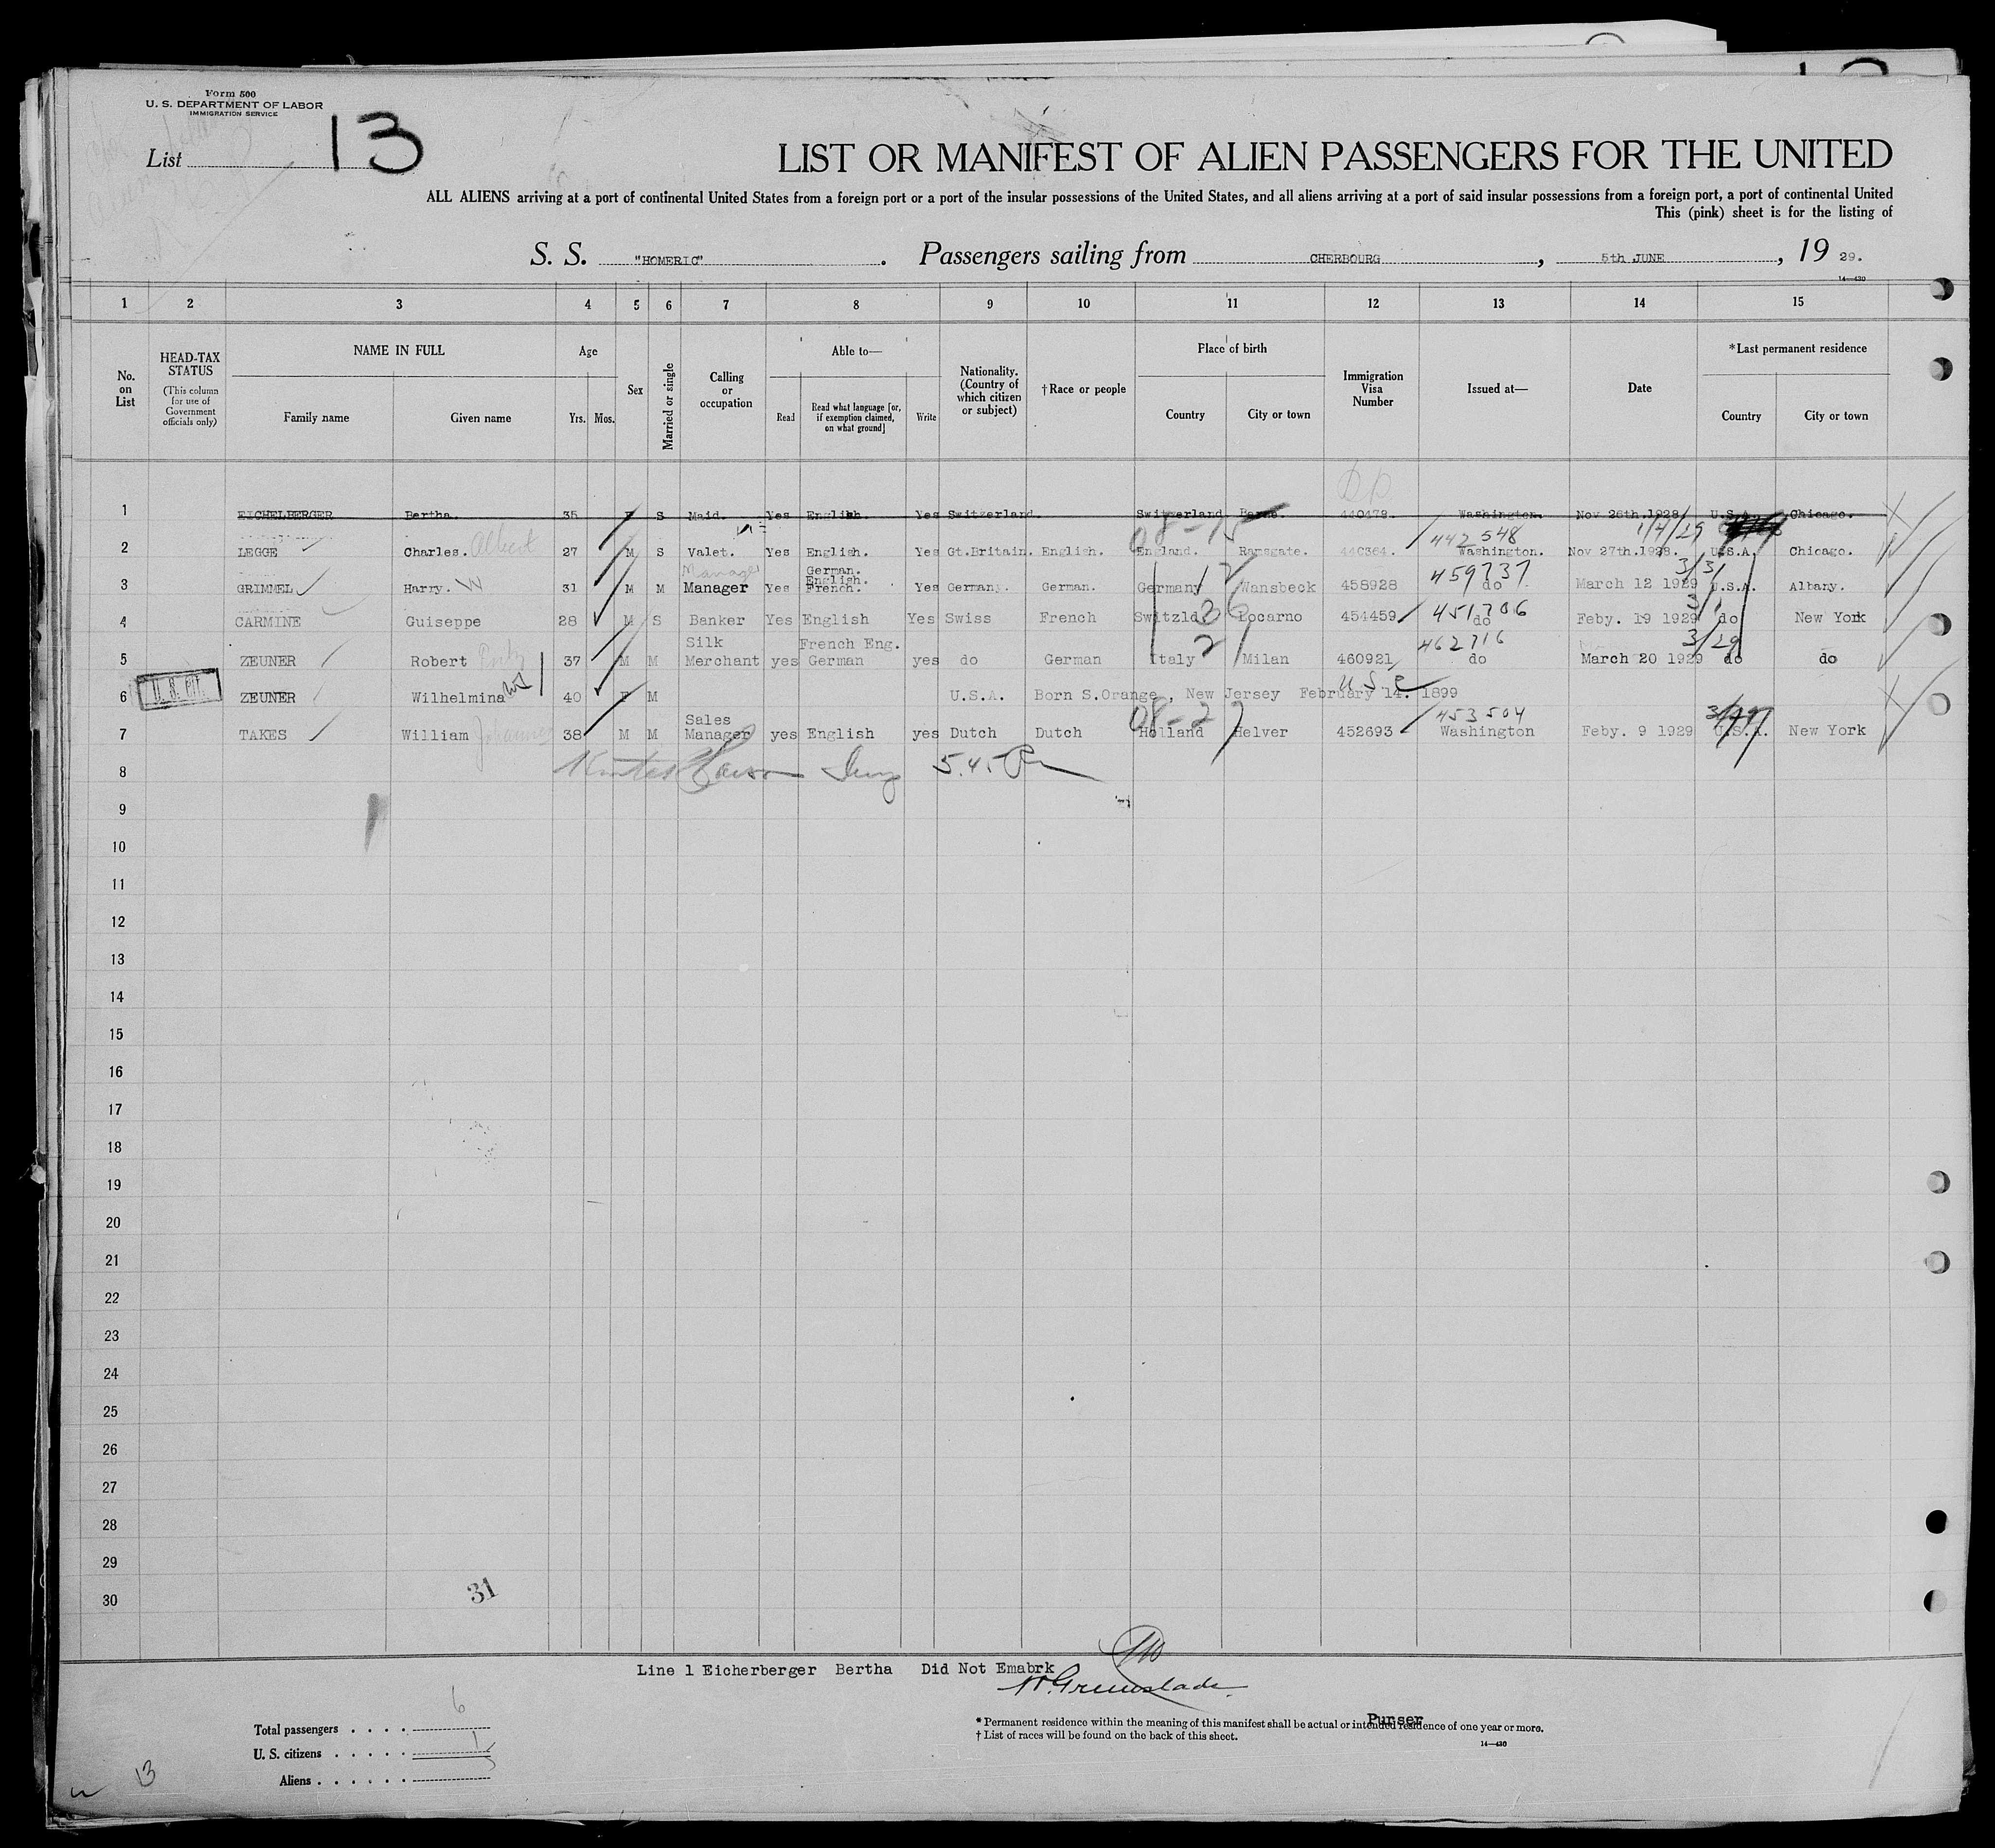 Form 500
U. S. DEPARTMENT OF LABOR
IMMIGRATION SERVICE
List 13
LIST OR MANIFEST OF ALIEN PASSENGERS FOR THE UNITED
ALL ALIENS arriving at a port of continental United States from a foreign port or a port of the insular possessions of the United States, and all aliens arriving at a port of said insular possessions from a foreign port, a port of continental United
This (pink) sheet is for the listing of
S. S. "HOMERIC". Passengers sailing from CHERBOURG, 5th JUNE, 19 29.
14—430
1 2 3 4 5 6 7 8 9 10 11 12 13 14 15
No. on List
HEAD-TAX STATUS (This column for use of Government officials only)
NAME IN FULL
Family name Given name
Age
Yrs. Mos.
Sex
Married or single
Calling or occupation
Able to—
Read
Read what language [or, if exemption claimed, on what ground]
Write
Nationality. (Country of which citizen or subject)
†Race or people
Place of birth
Country City or town
Immigration Visa Number
Issued at—
Date
*Last permanent residence
Country City or town
1 EICHELBERGER Bertha. 35 F S Maid. Yes English. Yes Switzerland. Switzerland Berne. 440479. Washington. Nov 26th.1928 U.S.A. Chicago.
08-15 442548 1/4/29
2 LEGGE Charles. Albert 27 M S Valet. Yes English. Yes Gt.Britain. English. England. Ramsgate. 440364. Washington. Nov 27th.1928. U.S.A. Chicago.
Manager German. English. 459737 3/31
3 GRIMMEL Harry. W 31 M M Manager Yes French. Yes Germany. German. Germany Wansbeck 458928 do March 12 1929 U.S.A. Albany.
451306
4 CARMINE Guiseppe 28 M S Banker Yes English Yes Swiss French Switzld Locarno 454459 do Feby. 19 1929 do New York
Silk French Eng. 462716 3/29
5 ZEUNER Robert 37 M M Merchant yes German yes do German Italy Milan 460921 do March 20 1929 do do
U.S. CIT. USC
6 ZEUNER Wilhelmina 40 F M U.S.A. Born S.Orange, New Jersey February 14. 1899
Sales 08-27 453504
7 TAKES William Johannes 38 M M Manager yes English yes Dutch Dutch Holland Helver 452693 Washington Feby. 9 1929 U.S.A. New York
8 5.45 Pm
9
10
11
12
13
14
15
16
17
18
19
20
21
22
23
24
25
26
27
28
29
30
31
Line 1 Eicherberger Bertha Did Not Emabrk
Purser
Total passengers . . . . 6
U. S. citizens . . . . . 1
Aliens . . . . . . 5
* Permanent residence within the meaning of this manifest shall be actual or intended residence of one year or more.
† List of races will be found on the back of this sheet.
14—430
13